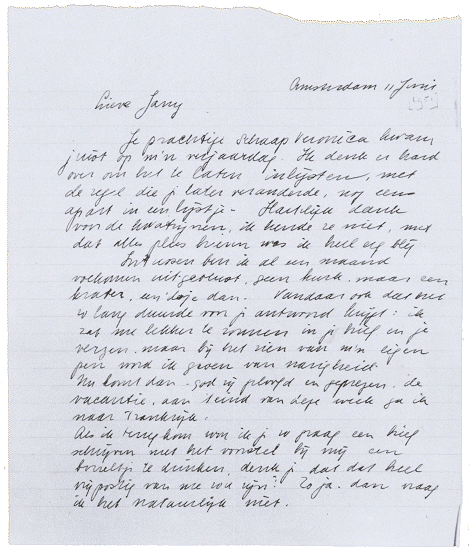 Amsterdam 11 Juni
[1951]
Lieve Jany
Je prachtige Schaap Veronica kwam
juist op m'n verjaardag. Ik denk er hard
over om het te laten inlijsten, met
de regel die je later veranderde, nog eens
apart in een lijstje - Hartelijk dank
voor de kwatrijnen, ik kende ze niet, met
dat alles plus brieven was ik heel erg blij
Intussen ben ik al een maand
volkomen uitgeblust, geen kurk maar een
krater, en dan. Vandaar ook dat het
zo lang duurde voor je antwoord krijgt: ik
zat me lekker te zonnen in je brief en je
verzen, maar bij het zien van m'n eigen
pen word ik groen van narigheid.
Nu komt dan - god zij geloofd en geprezen - de
vacantie, aan 't eind van deze week ga ik
naar Frankrijk.
Als ik terug kom wou ik je zo graag een brief
schrijven met het voorstel bij mij een
borreltje te drinken, denk je dat dat heel
vrijpostig van me zou zijn? Zo ja, dan vraag
ik het natuurlijk niet.